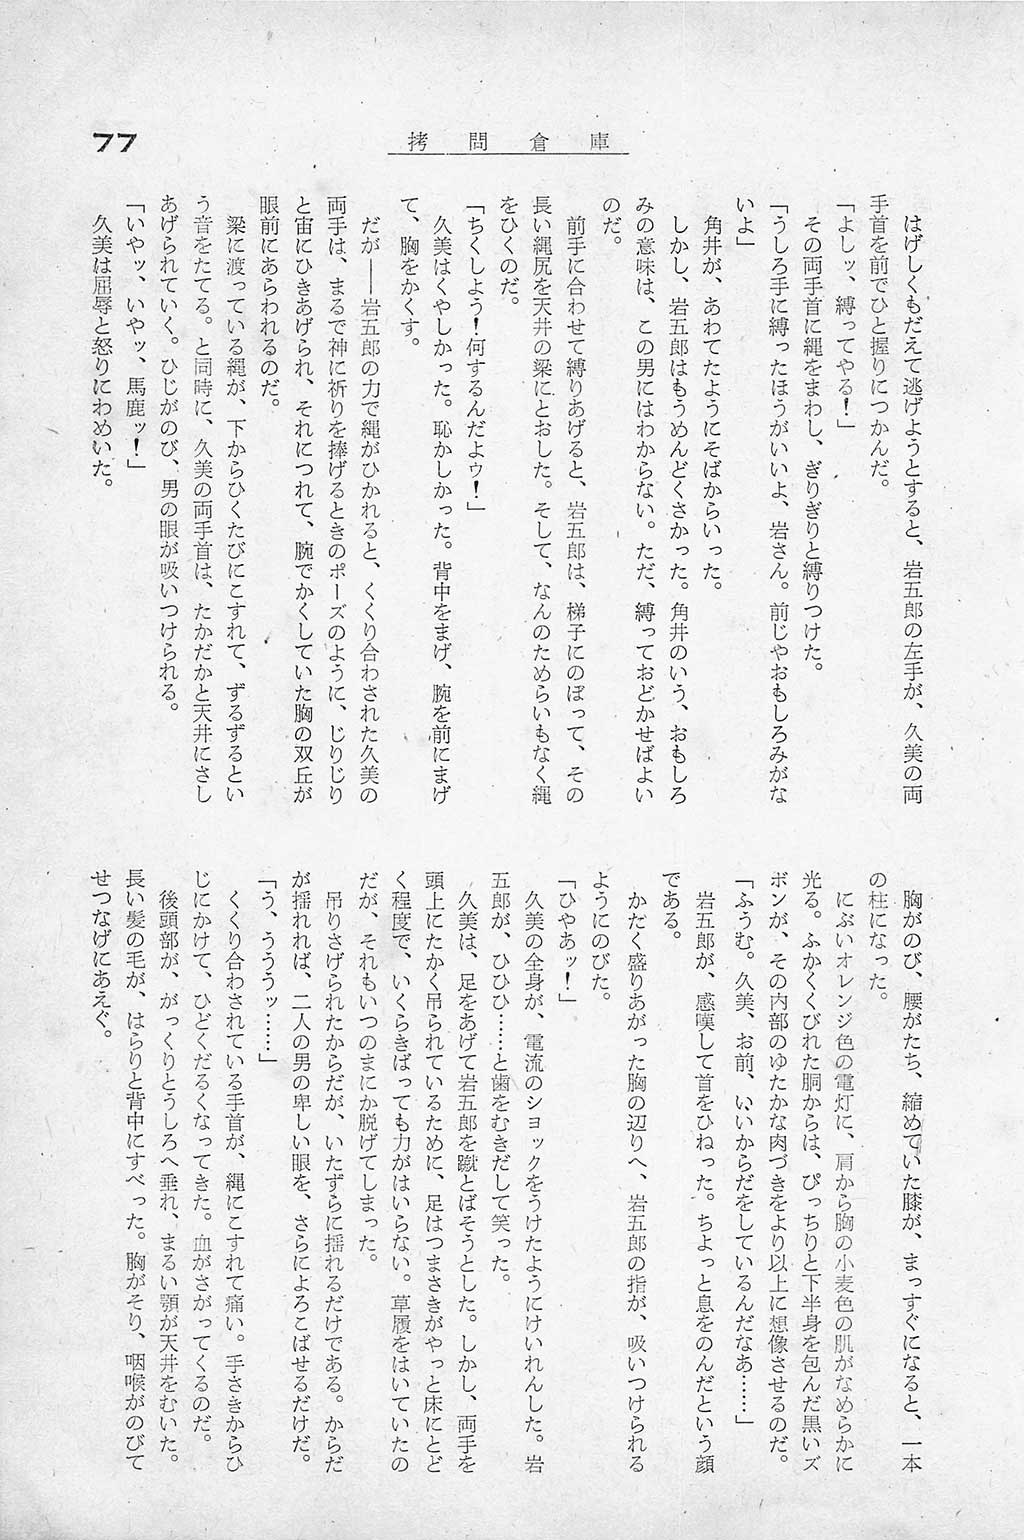 77
拷問倉庫
はげしくもだえて逃げようとすると、岩五郎の左手が、久美の両
手首を前でひと握りにつかんだ。
「よしッ、縛ってやる！」
その両手首に縄をまわし、ぎりぎりと縛りつけた。
「うしろ手に縛ったほうがいいよ、岩さん。前じゃおもしろみがな
いよ」
角井が、あわてたようにそばからいった。
しかし、岩五郎はもうめんどくさかった。角井のいう、おもしろ
みの意味は、この男にはわからない。ただ、縛っておどかせばよい
のだ。
前手に合わせて縛りあげると、岩五郎は、梯子にのぼって、その
長い縄尻を天井の梁にとおした。そして、なんのためらいもなく縄
をひくのだ。
「ちくしよう！何するんだよゥ！」
久美はくやしかった。恥かしかった。背中をまげ、腕を前にまげ
て、胸をかくす。
だが――岩五郎の力で縄がひかれると、くくり合わされた久美の
両手は、まるで神に祈りを捧げるときのポーズのように、じりじり
と宙にひきあげられ、それにつれて、腕でかくしていた胸の双丘が
眼前にあらわれるのだ。
梁に渡っている縄が、下からひくたびにこすれて、ずるずるとい
う音をたてる。と同時に、久美の両手首は、たかだかと天井にさし
あげられていく。ひじがのび、男の眼が吸いつけられる。
「いやッ、いやッ、馬鹿ッ！」
久美は屈辱と怒りにわめいた。
胸がのび、腰がたち、縮めていた膝が、まっすぐになると、一本
の柱になった。
にぶいオレンジ色の電灯に、肩から胸の小麦色の肌がなめらかに
光る。ふかくくびれた胴からは、ぴっちりと下半身を包んだ黒いズ
ボンが、その内部のゆたかな肉づきをより以上に想像させるのだ。
「ふうむ。久美、お前、いいからだをしているんだなあ……」
岩五郎が、感嘆して首をひねった。ちよっと息をのんだという顔
である。
かだく盛りあがった胸の辺りへ、岩五郎の指が、吸いつけられる
ようにのびた。
「ひやあッ！」
久美の全身が、電流のショックをうけたようにけいれんした。岩
五郎が、ひひひ……と歯をむきだして笑った。
久美は、足をあげて岩五郎を蹴とばそうとした。しかし、両手を
頭上にたかく吊られているために、足はつまさきがやっと床にとど
く程度で、いくらきばっても力がはいらない。草履をはいていたの
だが、それもいつのまにか脱げてしまった。
吊りさげられたからだが、いたずらに揺れるだけである。からだ
が揺れれば、二人の男の卑しい眼を、さらによろこばせるだけだ。
「う、うううッ……」
くくり合わされている手首が、縄にこすれて痛い。手さきからひ
じにかけて、ひどくだるくなってきた。血がさがってくるのだ。
後頭部が、がっくりとうしろへ垂れ、まるい顎が天井をむいた。
長い髪の毛が、はらりと背中にすべった。胸がそり、咽喉がのびて
せつなげにあえぐ。